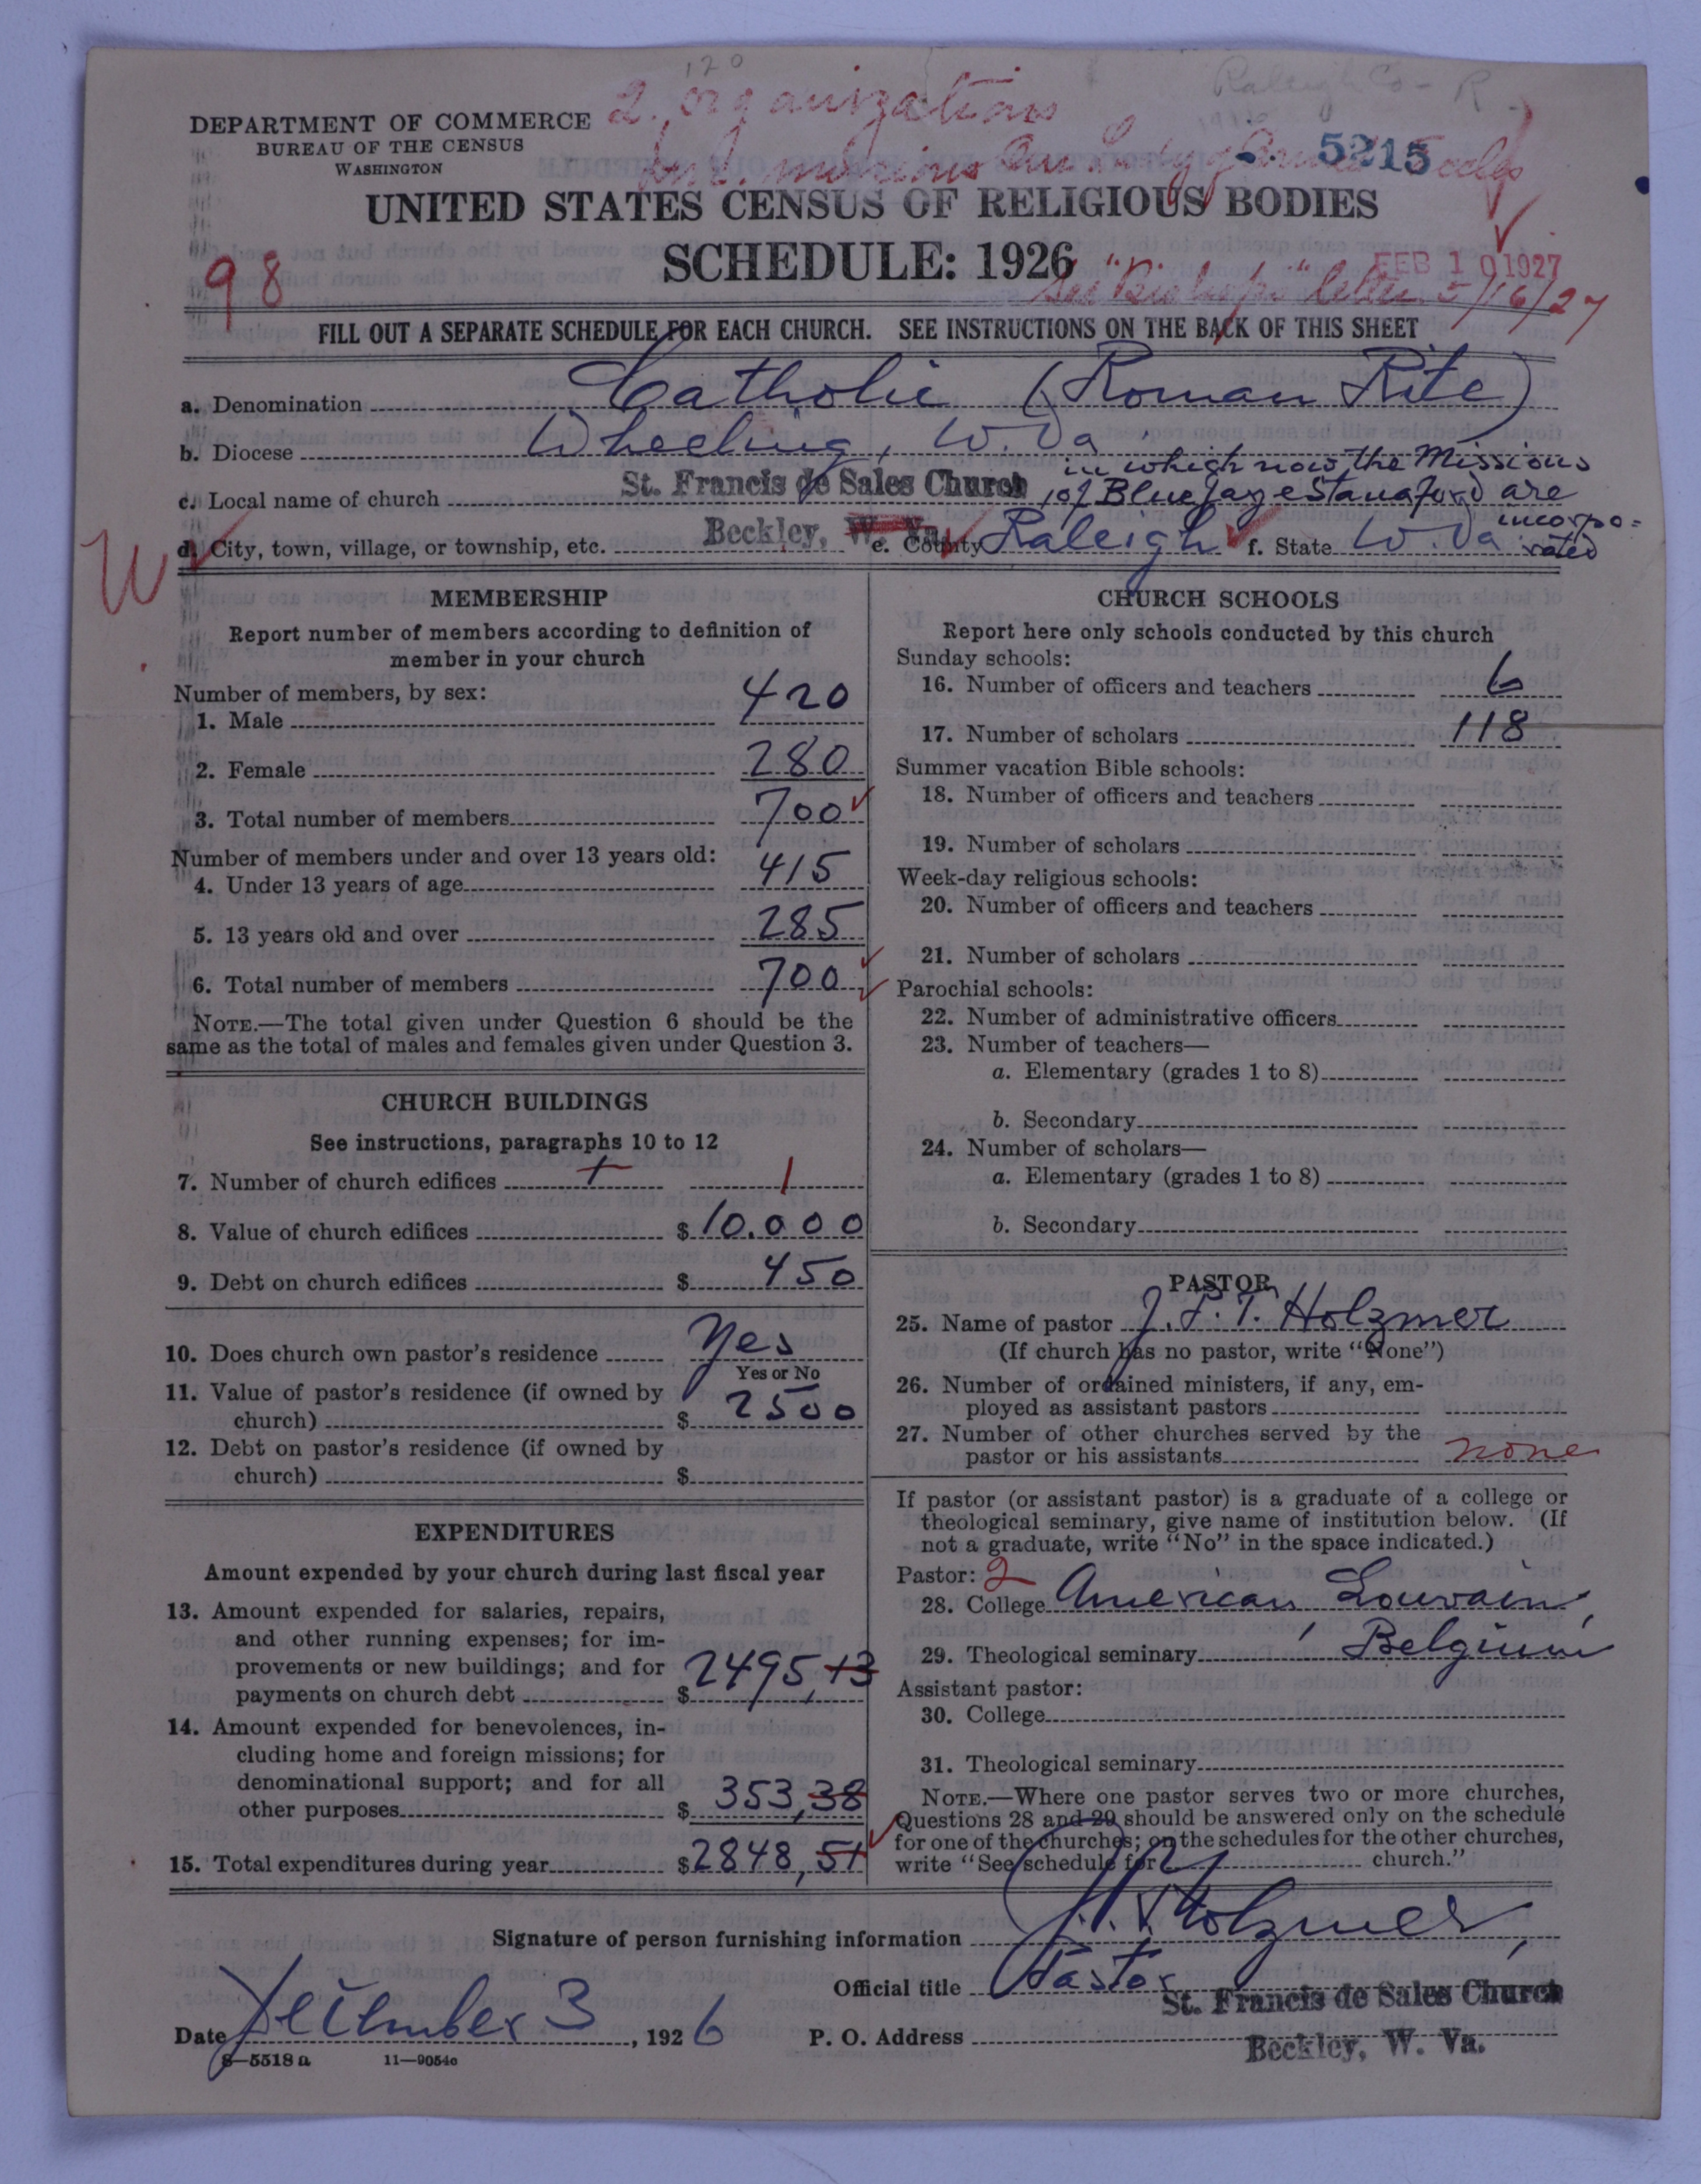 120
Raleigh Co- R
2 organizations
DEPARTMENT OF COMMERCE
BUREAU OF THE CENSUS
WASHINGTON
5215
UNITED STATES CENSUS OF RELIGIOUS BODIES
SCHEDULE: 1926
FEB 10 1927
98
See "Bishop's" letter 5/16/27
FILL OUT A SEPARATE SCHEDULE FOR EACH CHURCH. SEE INSTRUCTIONS ON THE BACK OF THIS SHEET
a. Denomination Catholic (Roman Rite)
b. Diocese Wheeling, W. Va
c. Local name of church St. Francis de Sales Church, in which now the Missions
of Blue Jay & Stanaford are
incorpo=
rated
W
d. City, town, village, or township, etc. Beckley, W. Va. e. County Raleigh f. State W. Va
MEMBERSHIP
Report number of members according to definition of
member in your church
Number of members, by sex:
1. Male 420
2. Female 280
3. Total number of members 700
Number of members under and over 13 years old:
4. Under 13 years of age 415
5. 13 years old and over 285
6. Total number of members 700
NOTE.—The total given under Question 6 should be the
same as the total of males and females given under Question 3.
CHURCH BUILDINGS
See instructions, paragraphs 10 to 12
7. Number of church edifices 1
8. Value of church edifices $10.000
9. Debt on church edifices $ 450
10. Does church own pastor's residence Yes
Yes or No
11. Value of pastor's residence (if owned by
church) $ 2500
12. Debt on pastor's residence (if owned by
church) $
EXPENDITURES
Amount expended by your church during last fiscal year
13. Amount expended for salaries, repairs,
and other running expenses; for im-
provements or new buildings; and for
payments on church debt $ 2495,13
14. Amount expended for benevolences, in-
cluding home and foreign missions; for
denominational support; and for all
other purposes $ 353,38
15. Total expenditures during year $2848,51
CHURCH SCHOOLS
Report here only schools conducted by this church
Sunday schools:
16. Number of officers and teachers 6
17. Number of scholars 118
Summer vacation Bible schools:
18. Number of officers and teachers
19. Number of scholars
Week-day religious schools:
20. Number of officers and teachers
21. Number of scholars
Parochial schools:
22. Number of administrative officers
23. Number of teachers—
a. Elementary (grades 1 to 8)
b. Secondary
24. Number of scholars—
a. Elementary (grades 1 to 8)
b. Secondary
PASTOR
25. Name of pastor J. F. T. Holzmer
(If church has no pastor, write "None")
26. Number of ordained ministers, if any, em-
ployed as assistant pastors
27. Number of other churches served by the
pastor or his assistants none
If pastor (or assistant pastor) is a graduate of a college or
theological seminary, give name of institution below. (If
not a graduate, write "No" in the space indicated.)
Pastor: 2
28. College American, Louvain,
29. Theological seminary Belgium
Assistant pastor:
30. College
31. Theological seminary
NOTE.—Where one pastor serves two or more churches,
Questions 28 and 29 should be answered only on the schedule
for one of the churches; on the schedules for the other churches,
write "See schedule for church."
Signature of person furnishing information Holzmer,
Official title Pastor
St. Francis de Sales Church
Date December 3, 1926 P. O. Address Beckley, W. Va.
8—5518a 11—9054c